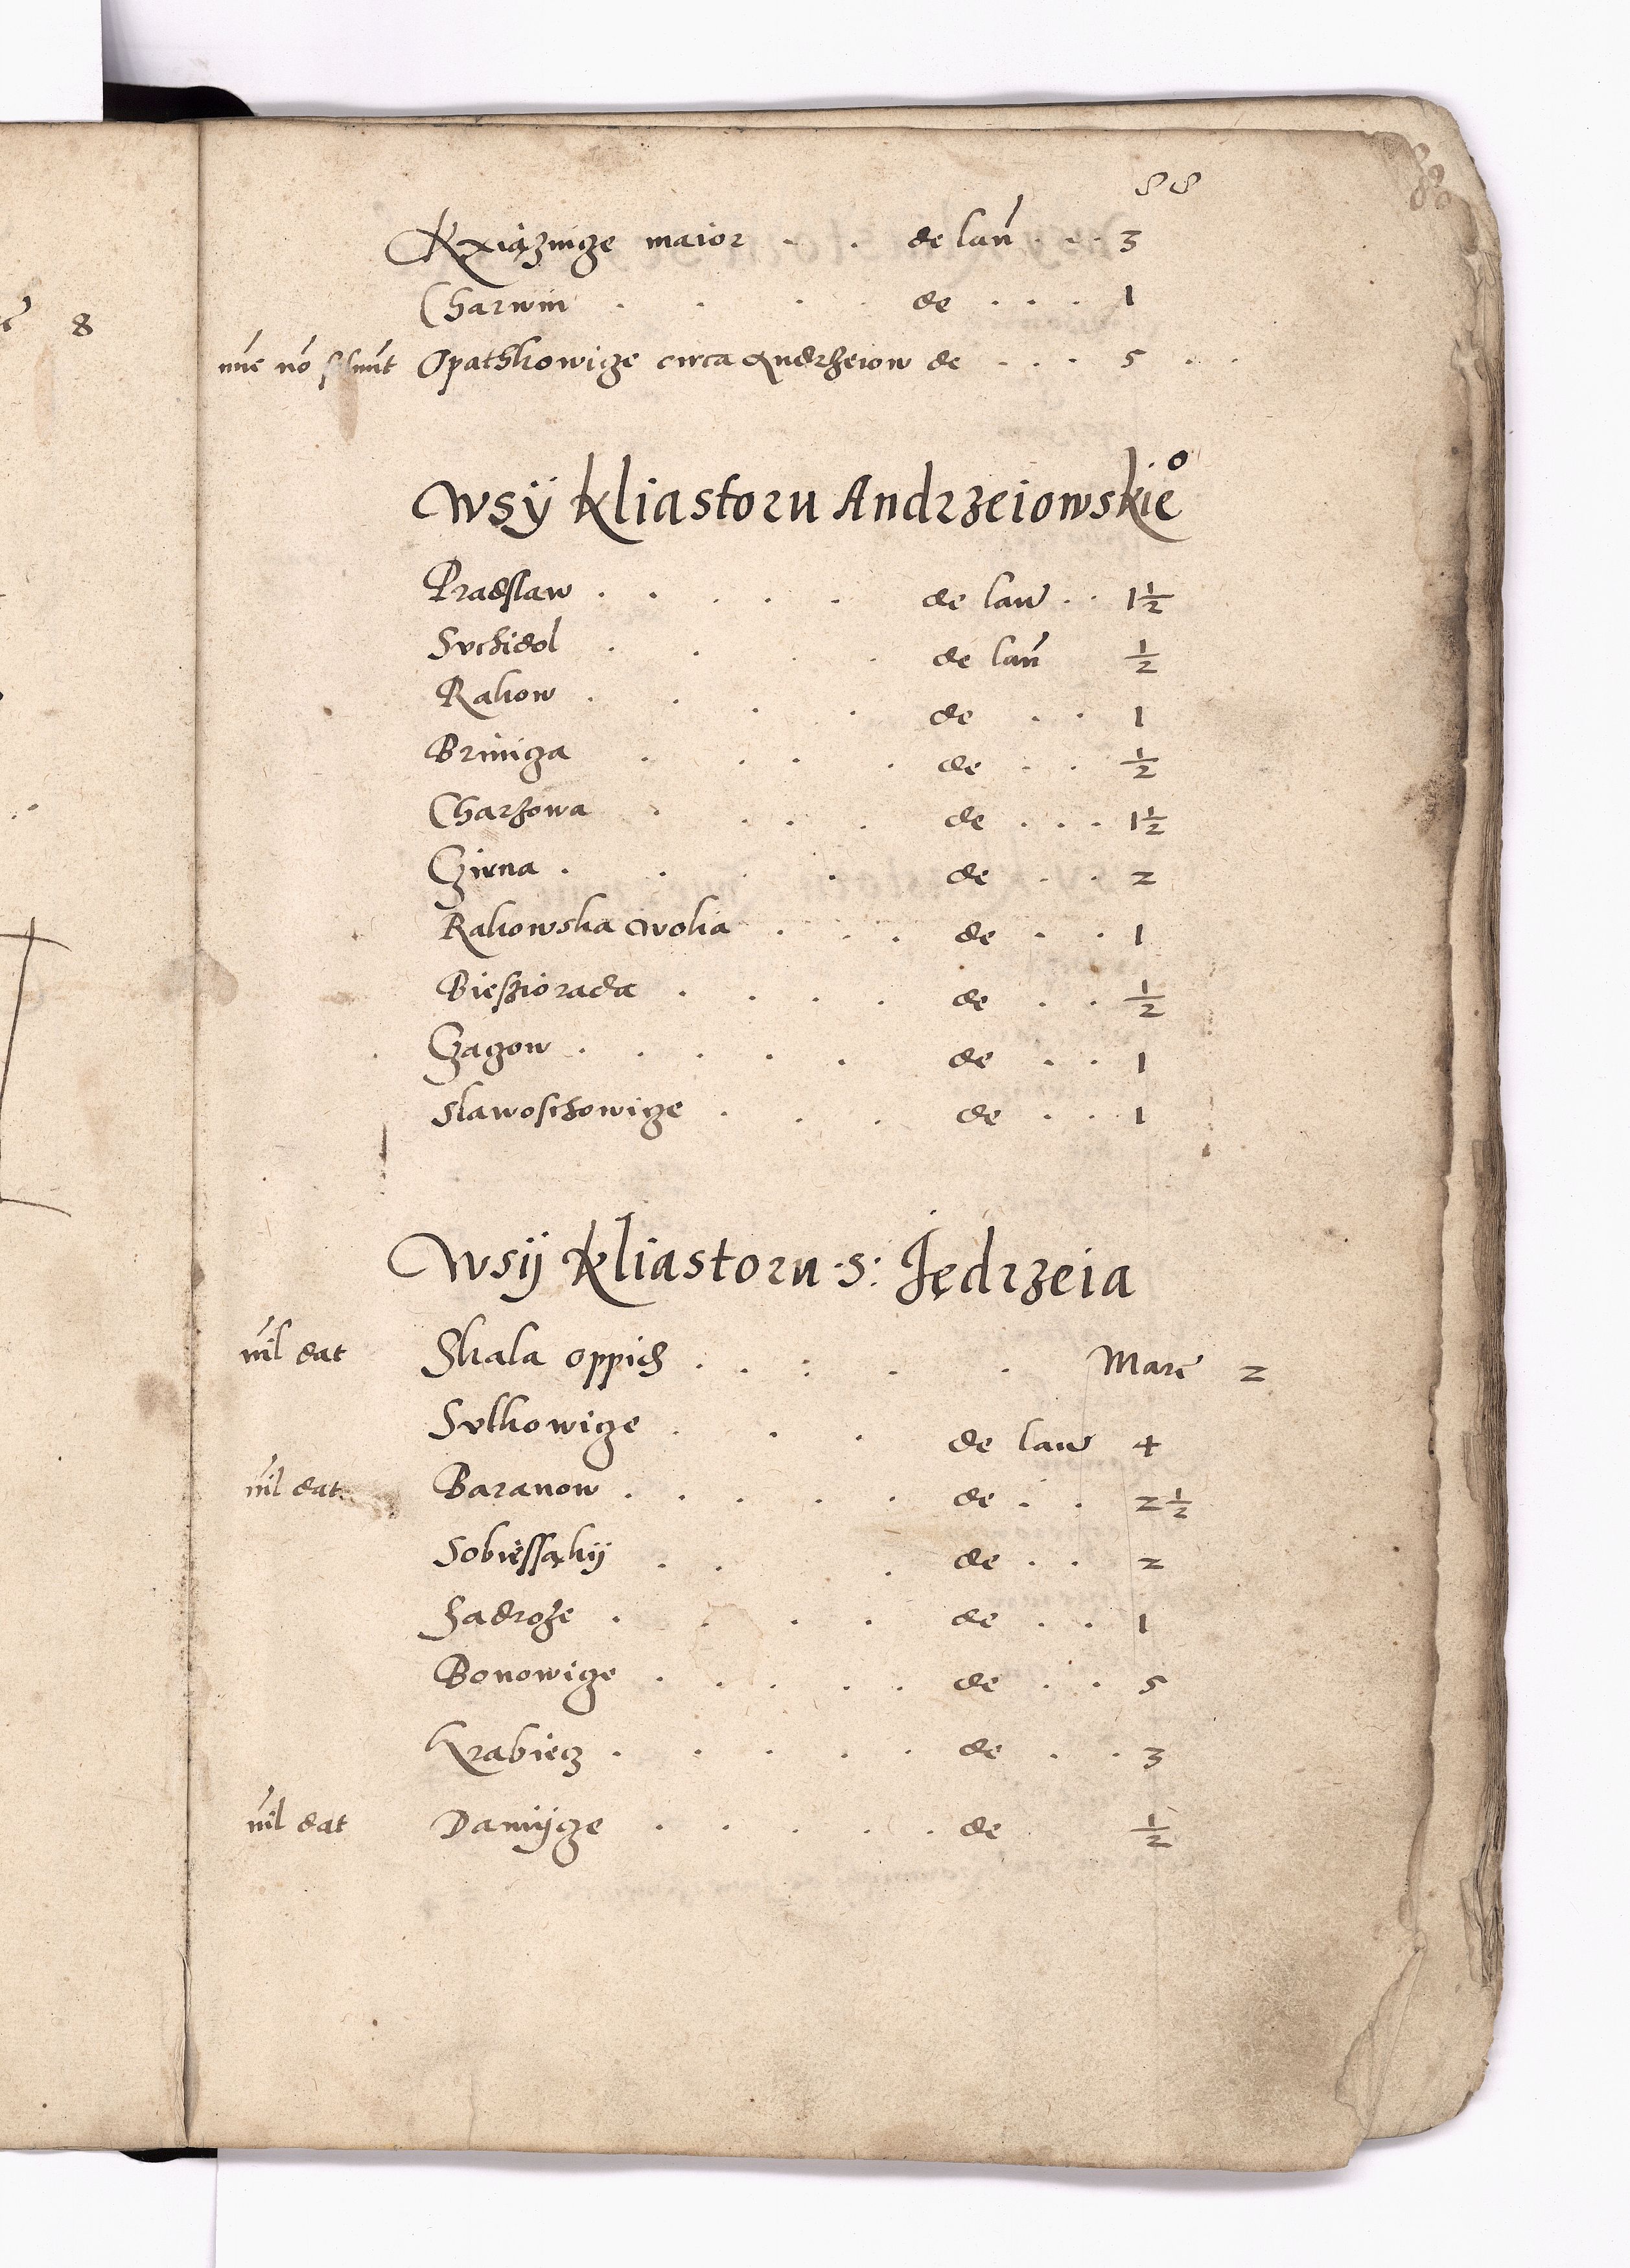 88
Kxiąznize maior . . de lań . . . 3
Charwin . . . . de . . . 1
nūc nō solūnt Opathkowicze circa Andrzeiow de . . . 5 . .
Wsÿ Kliastoru Andrzeiowskie°
Pradslaw . . . . . de lan . . 1½
Suchidol . . . . de lań ½
Rakow . . . . de . . 1
Briniga . . . . de . . ½
Charzowa . . . . de . . . 1½
Czirna . . . . de . . 2
Rakowska wolia . . . de . . 1
Biesziorada . . . . de . . ½
Czagow . . . . . de . . 1
Slawoschowicze . . . de . . 1
Wsÿ Kliastoru .S: Jędrzeia
nīl dat Skala oppid . . : . . Marc 2
Sulkowicze . . . de lan 4
nīl dat. Baranow . . . . . de . . 2½
Sobiessąkÿ . . . de . . 2
Zadroże . . . . de . . 1
Bonowicze . . . . . de . . 5
Krabiecz . . . . . de . . 3
nīl dat Damÿcze . . . . . de ½
8